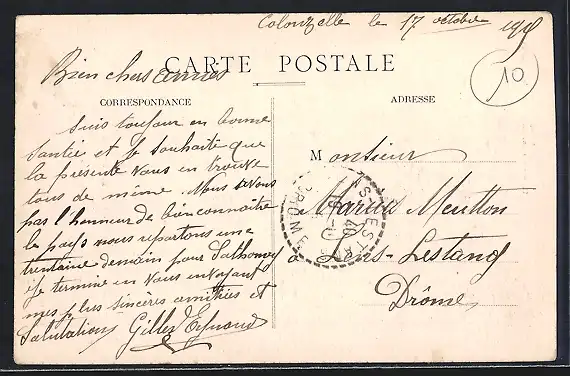 Colonzelle le 17 octobre 190
10
CARTE POSTALE
Bien chers amies
CORRESPONDANCE
ADRESSE
Suis toujour en bonne
santée et je souhaite que
la présente vous en trouve
tous de même. Nous avons
pas l'honneur de bien connaitre
le pays nous répartons une
trentaine demain pour
je termine en vous envoyant
mes plus sinceres amitiées et
Salutations Gilles
Monsieur
Marius Moutton
à Lens-Lestang
Drôme
DROME